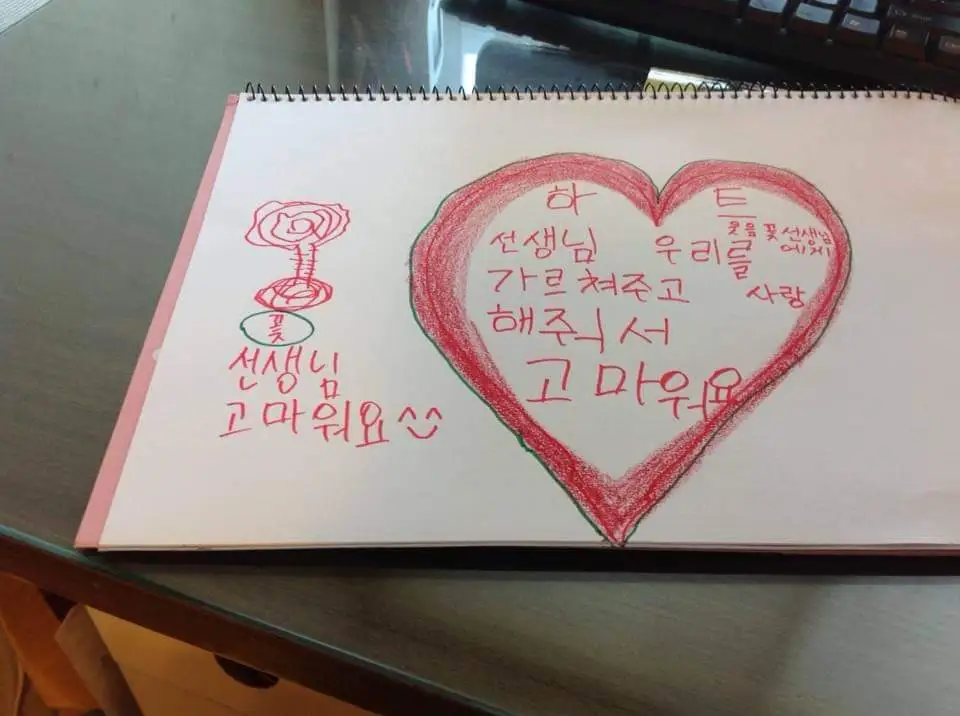 꽃
선생님
고마워요^^
하 트
웃음꽃선생님
에게
선생님 우리를
가르쳐주고 사랑
해주셔서
고마워요